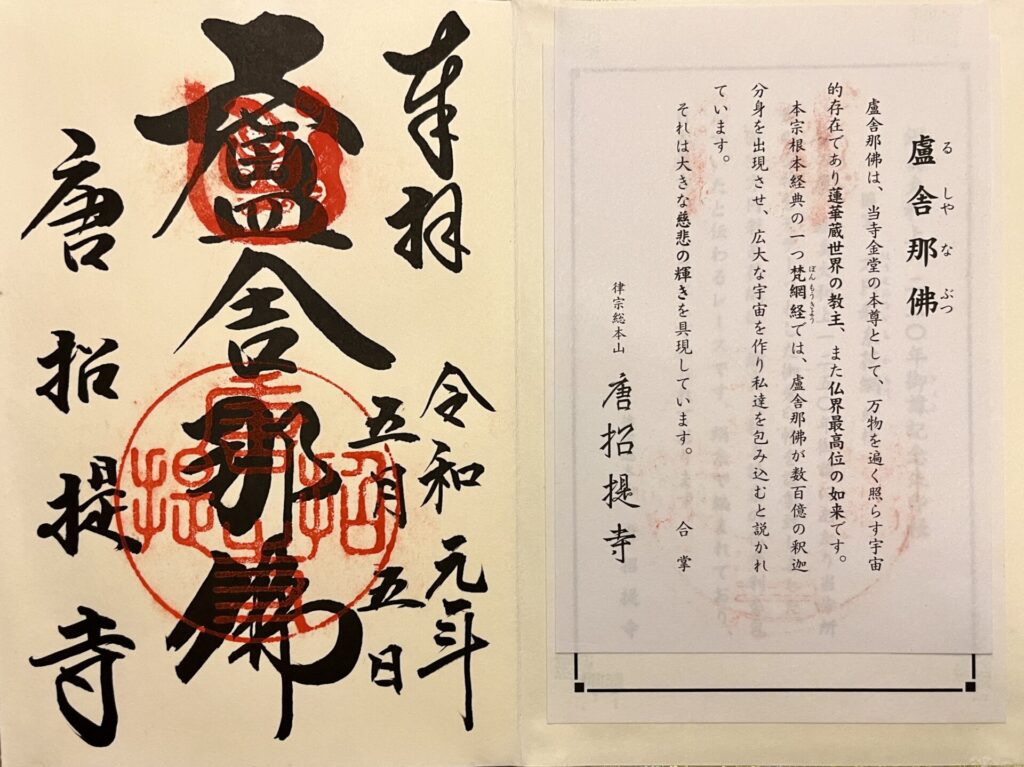 盧舎那佛
る しや な ぶつ
盧舎那佛は、当寺金堂の本尊として、万物を遍く照らす宇宙
的存在であり蓮華蔵世界の教主、また仏界最高位の如来です。
本宗根本経典の一つ梵網経では、盧舎那佛が数百億の釈迦
ぼんもうきよう
分身を出現させ、広大な宇宙を作り私達を包み込むと説かれ
ています。
それは大きな慈悲の輝きを具現しています。 合掌
律宗総本山 唐招提寺
奉拝 令和元年
五月五日
盧舎那佛
唐招提寺